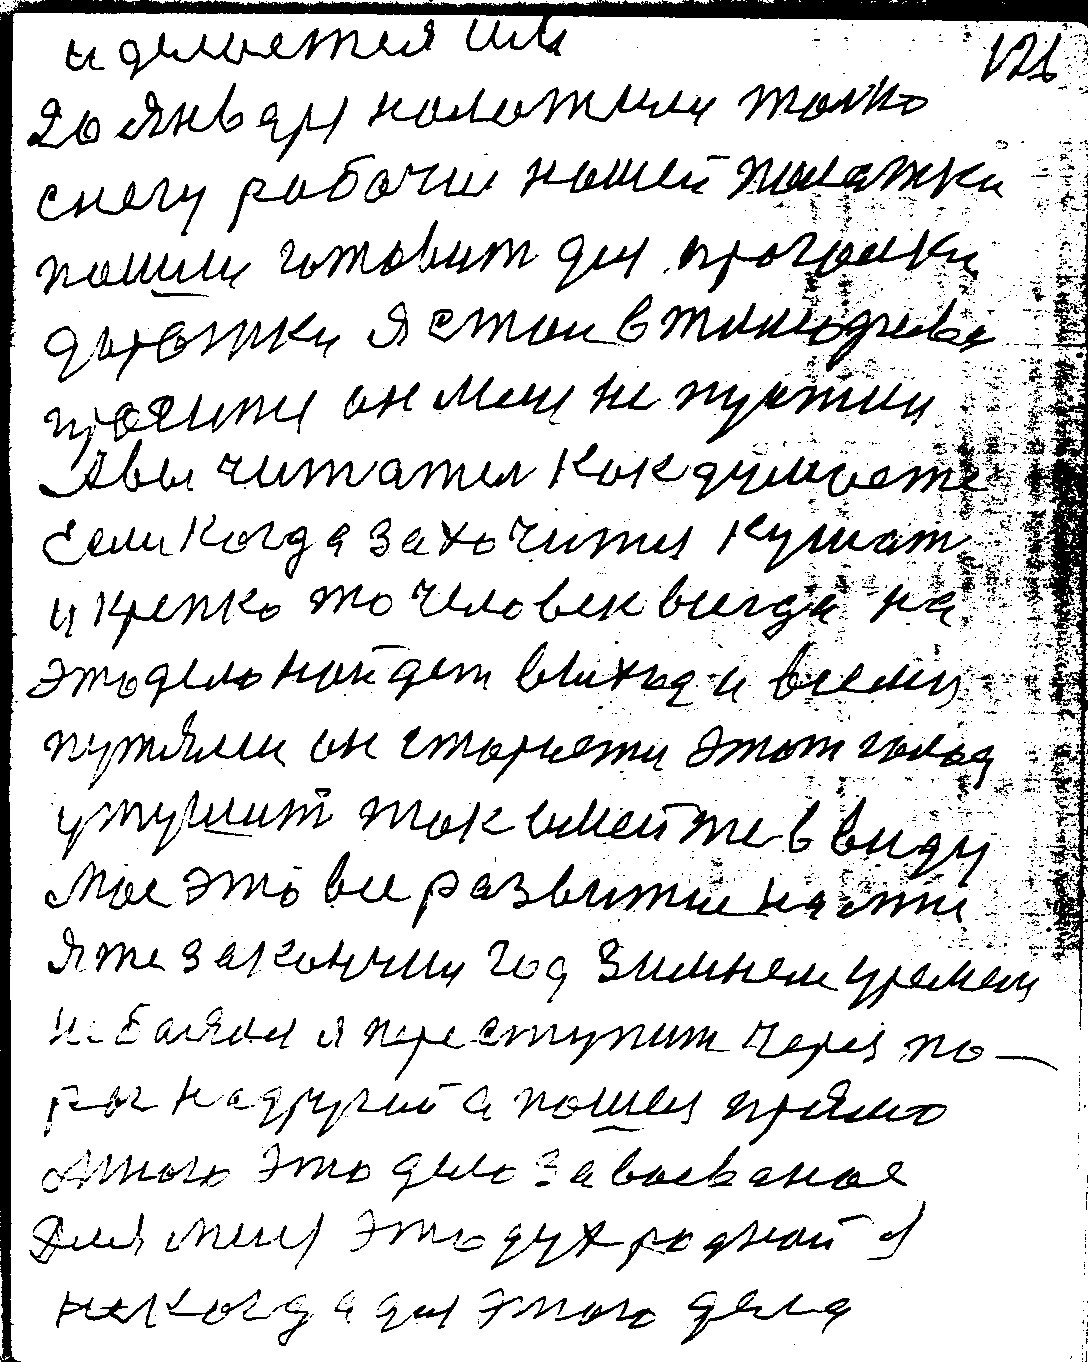 и делается им
121
20 январ наложили толко
снегу рабочи нашей
пошли готовит для прогулки
дорожки я стал в
проситя он мен не пустил
А вы читател как думаете
Если когда захочится кушат
и крепко то человек всегда на
это дело найдет выход и всеми
путями он старается этот голод
утушит так имейте в виду
Мое это все развитие настие
я же закончил год зимнем уремем
не боялся я переступит через по-
рог на другий а пошел прямо
этого это дело завоеваное
Для мен это дух родной я
никогда для этого дела